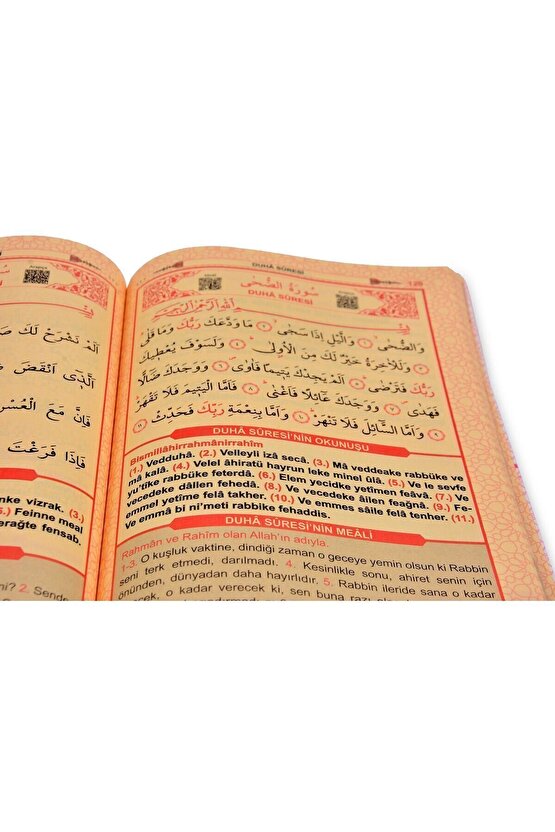 DUHÂ SÛRESİ
سُورَةُ الضُّحٰى
DUHÂ SÛRESİ
وَالضُّحٰىۙ ﴿١﴾ وَالَّيْلِ اِذَا سَجٰىۙ ﴿٢﴾ مَا وَدَّعَكَ رَبُّكَ وَمَا قَلٰىۜ
﴿٣﴾ وَلَلْاٰخِرَةُ خَيْرٌ لَكَ مِنَ الْاُو۫لٰىۜ ﴿٤﴾ وَلَسَوْفَ يُعْط۪يكَ
رَبُّكَ فَتَرْضٰىۜ ﴿٥﴾ اَلَمْ يَجِدْكَ يَت۪يمًا فَاٰوٰىۖ ﴿٦﴾ وَوَجَدَكَ ضَٓالًّا
فَهَدٰىۖ ﴿٧﴾ وَوَجَدَكَ عَٓائِلًا فَاَغْنٰىۜ ﴿٨﴾ فَاَمَّا الْيَت۪يمَ فَلَا تَقْهَرْۜ
﴿٩﴾ وَاَمَّا السَّٓائِلَ فَلَا تَنْهَرْۜ ﴿١٠﴾ وَاَمَّا بِنِعْمَةِ رَبِّكَ فَحَدِّثْ ﴿١١﴾
DUHÂ SÛRESİ'NİN OKUNUŞU
Bismillâhirrahmânirrahîm
(1.) Vedduhâ. (2.) Velleyli izâ secâ. (3.) Mâ veddeake rabbüke ve
mâ kalâ. (4.) Velel âhiratü hayrun leke minel ûlâ. (5.) Ve le sevfe
yu'tîke rabbüke feterdâ. (6.) Elem yecidke yetîmen feâvâ. (7.) Ve
vecedeke dâllen fehedâ. (8.) Ve vecedeke âilen feağnâ. (9.) Fe-
emmel yetîme felâ takher. (10.) Ve emmes sâile felâ tenher. (11.)
Ve emmâ bi ni'meti rabbike fehaddis.
DUHÂ SÛRESİ'NİN MEÂLİ
Rahmân ve Rahîm olan Allah'ın adıyla.
1-3. O kuşluk vaktine, dindiği zaman o geceye yemin olsun ki Rabbin
seni terk etmedi, darılmadı. 4. Kesinlikle sonu, ahiret senin için
önünden, dünyadan daha hayırlıdır. 5. Rabbin ileride sana o kadar
o kadar verecek ki, sen buna razı
اَلَمْ نَشْرَحْ لَكَ
اَلَّذ۪ٓي اَنْقَضَ
فَاِنَّ مَعَ الْعُسْرِ
فَاِذَا فَرَغْتَ
nke vizrak. (3.)
5.) Feinne meal
erağte fensab.
mi? 2. Sende